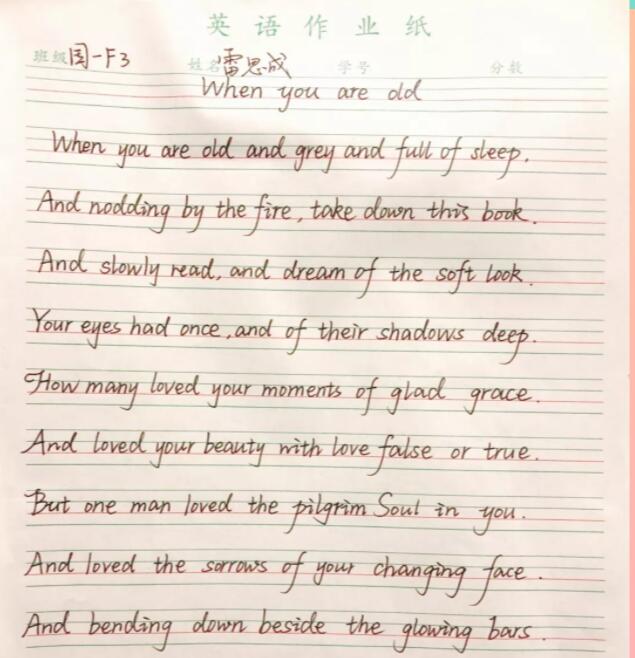 英语作业纸
班级周一F3 姓名雷思成 学号 分数
When you are old
When you are old and grey and full of sleep.
And nodding by the fire, take down this book.
And slowly read, and dream of the soft look.
Your eyes had once, and of their shadows deep.
How many loved your moments of glad grace.
And loved your beauty with love false or true.
But one man loved the pilgrim Soul in you.
And loved the sorrows of your changing face.
And bending down beside the glowing bars.